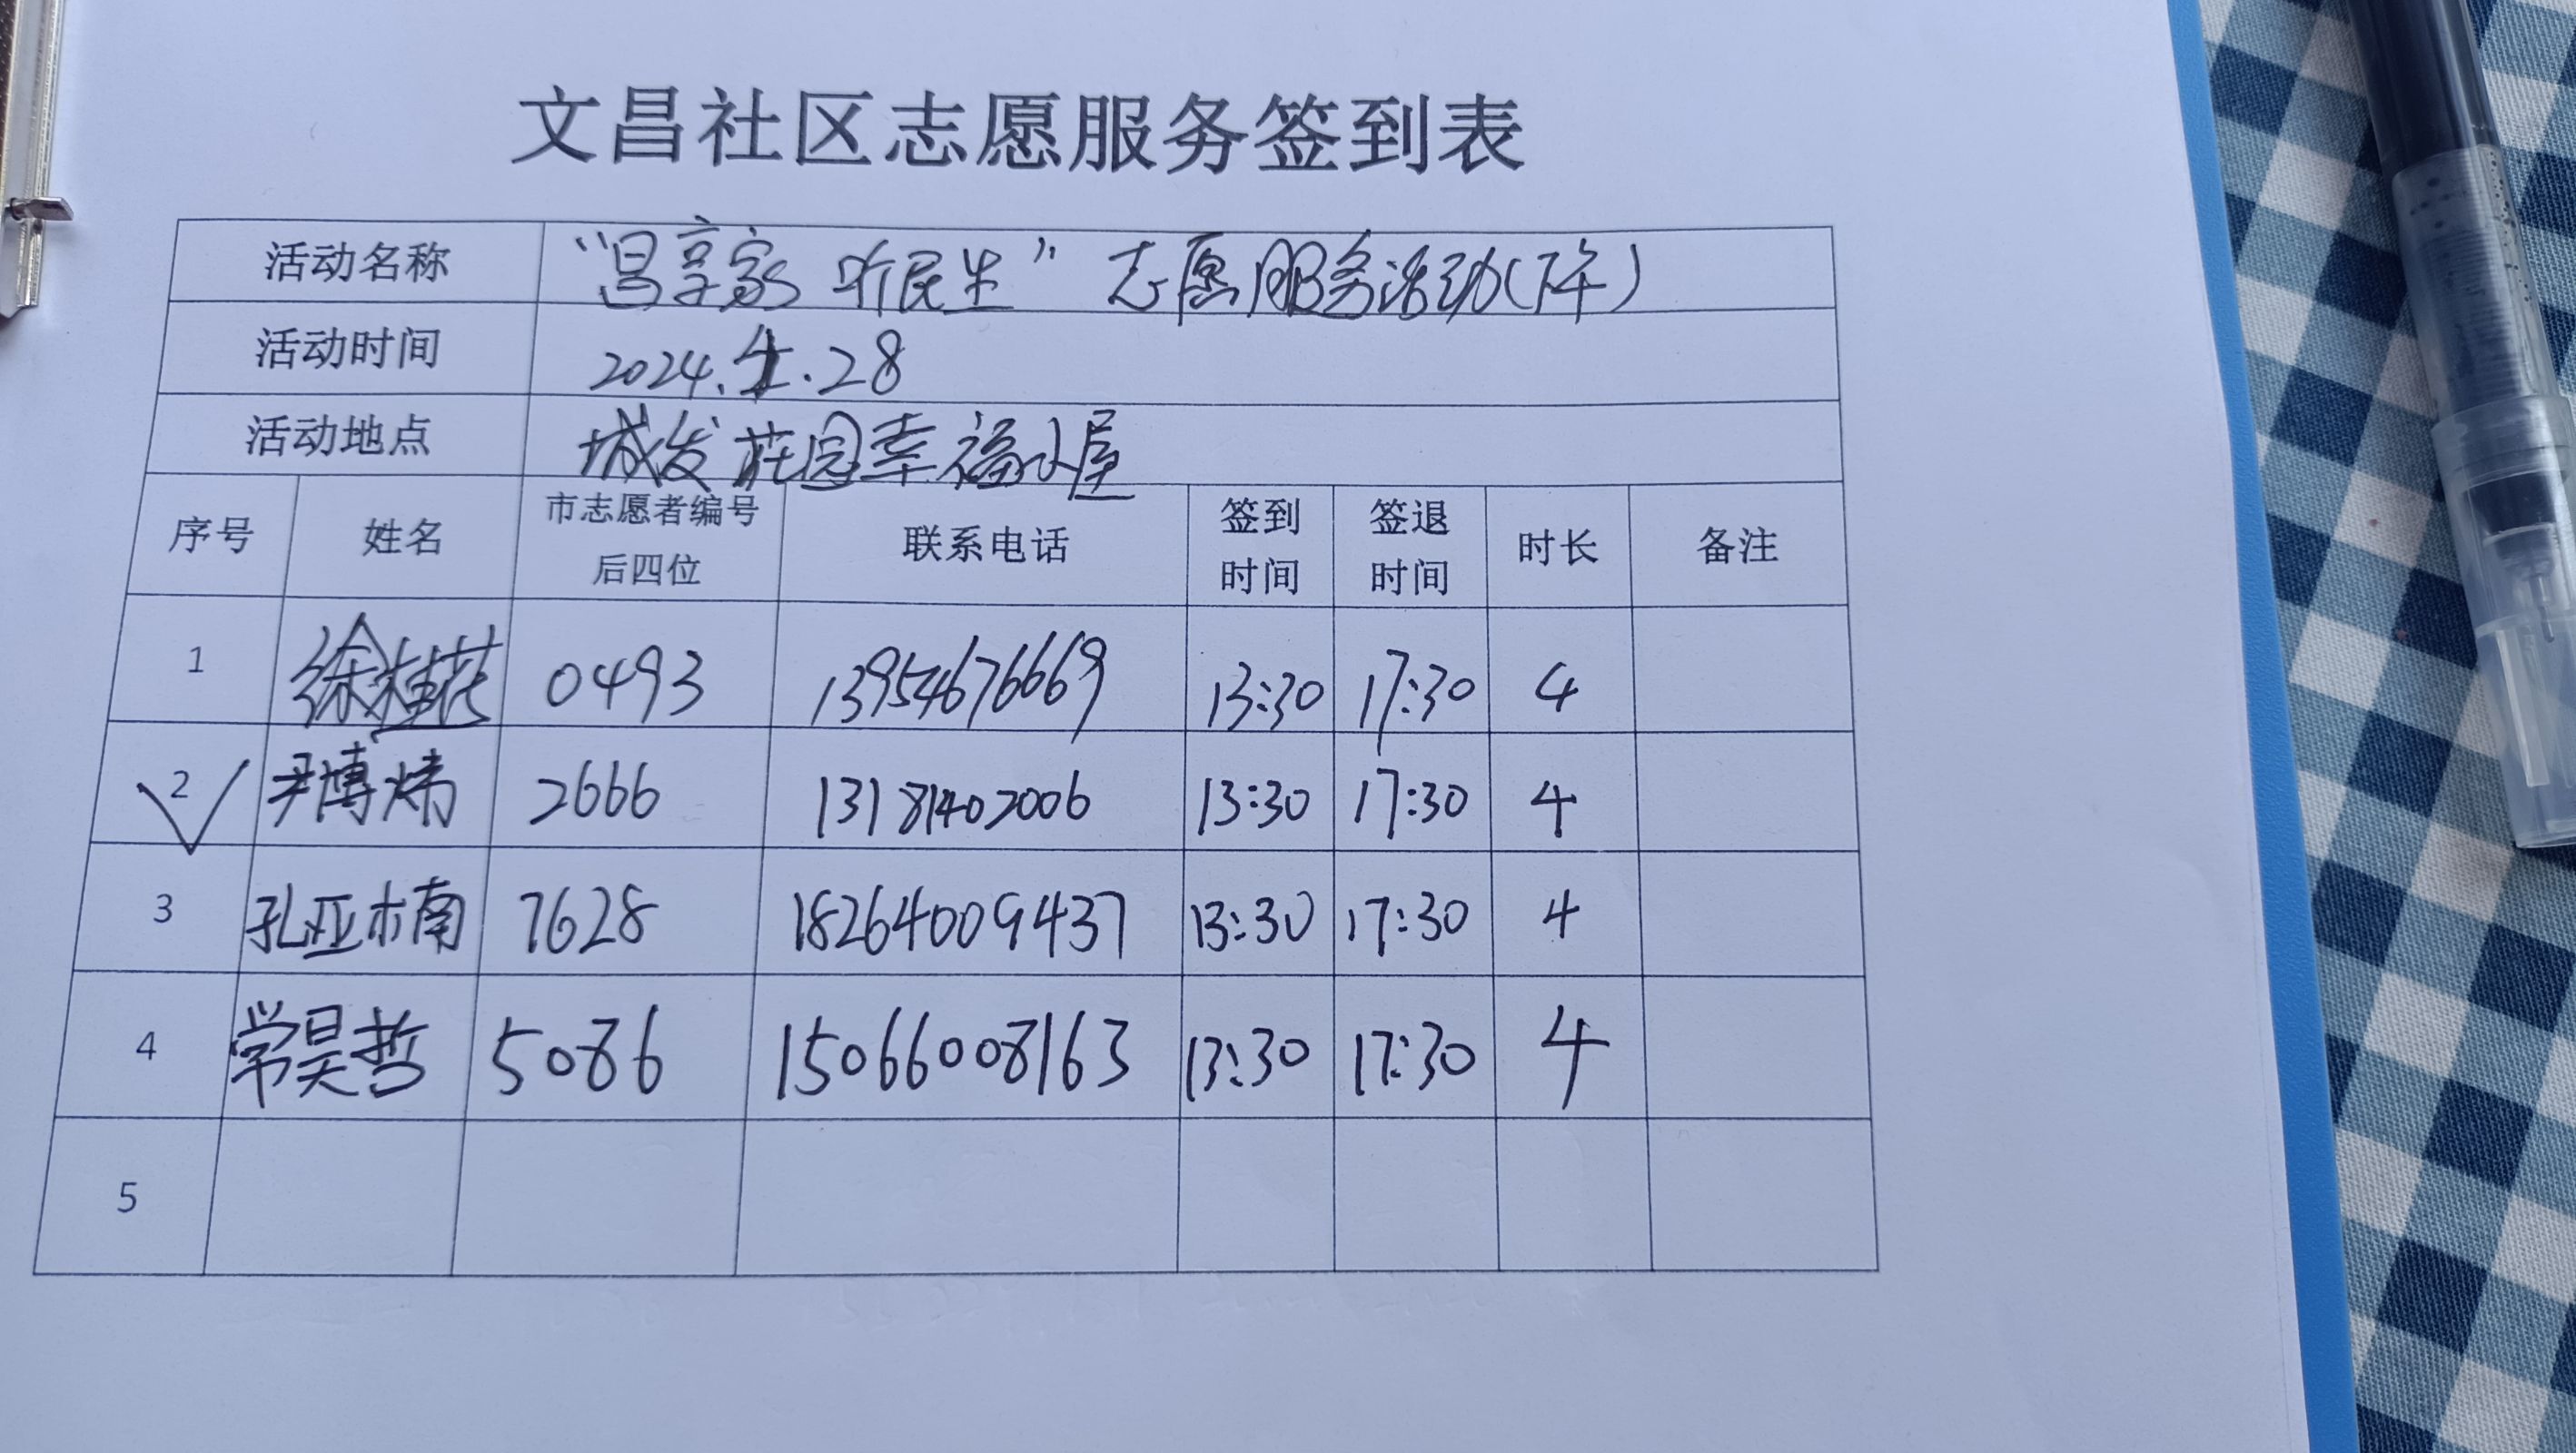 文昌社区志愿服务签到表
活动名称 “昌享家 听民生”志愿服务活动(下午)
活动时间 2024.1.28
活动地点 城发庄园幸福小屋
序号 姓名 市志愿者编号后四位 联系电话 签到时间 签退时间 时长 备注
1 徐桂花 0493 13954676669 13:30 17:30 4
2 尹博炜 2666 13181402006 13:30 17:30 4
3 孔亚楠 7628 18264009437 13:30 17:30 4
4 常昊哲 5086 15066008163 13:30 17:30 4
5